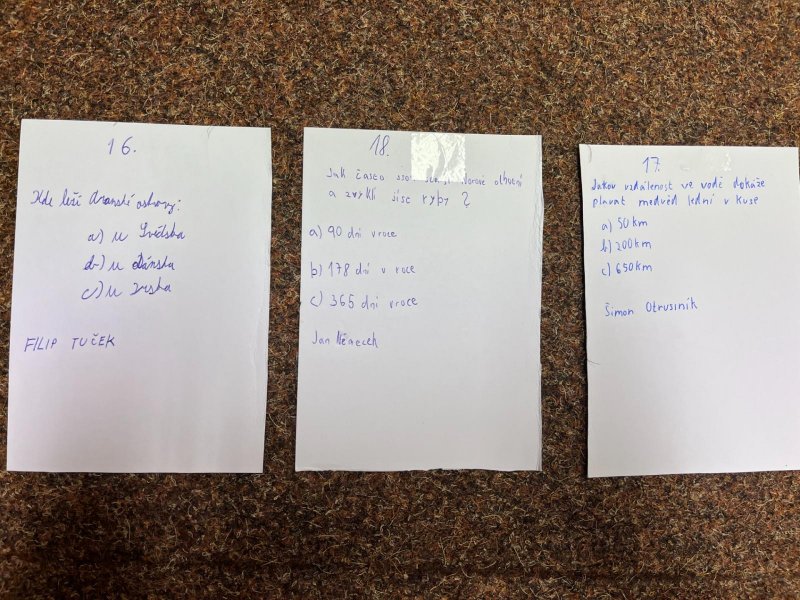 16.
Kde leží Aranské ostrovy:
a) u Švédska
b) u Dánska
c) u Irska
FILIP TUČEK
18.
Jak často jsou
a zvyklí jíst ryby ?
a) 90 dní v roce
b) 178 dní v roce
c) 365 dní v roce
Jan
17.
Jakou vzdálenost ve vodě dokáže
plavat medvěd lední v kuse
a) 50 km
b) 200 km
c) 650 km
Šimon Otrusiník